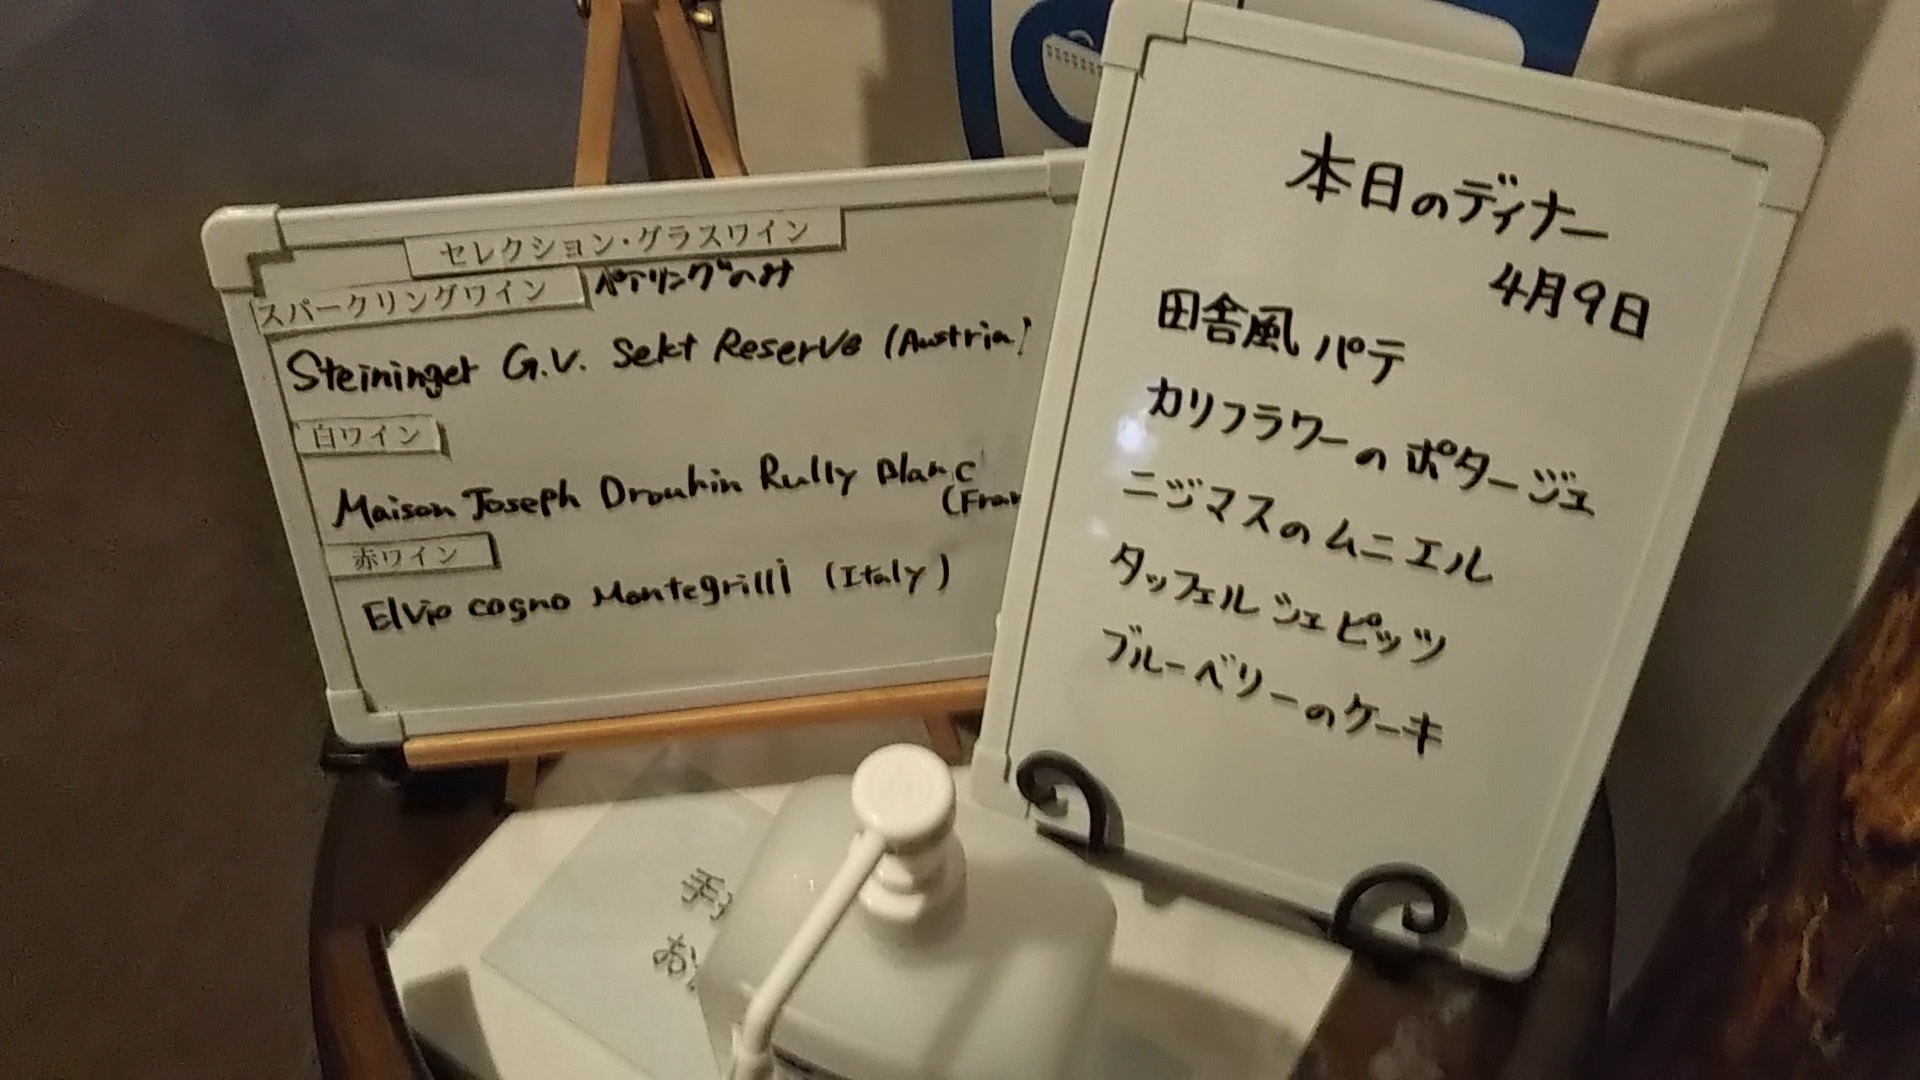 セレクション・グラスワイン
スパークリングワイン ペアリングのみ
Steininger G.V. Sekt Reserve (Austria)
白ワイン
Maison Joseph Drouhin Rully Blanc
(Fran
赤ワイン
Elvio cogno Montegrilli (Italy)
本日のディナー
4月9日
田舎風パテ
カリフラワーのポタージュ
ニジマスのムニエル
タッフェルシュピッツ
ブルーベリーのケーキ
手
お